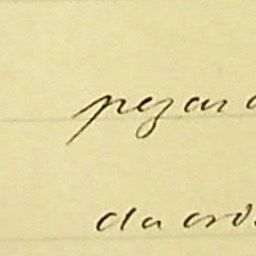 pezar
da ord